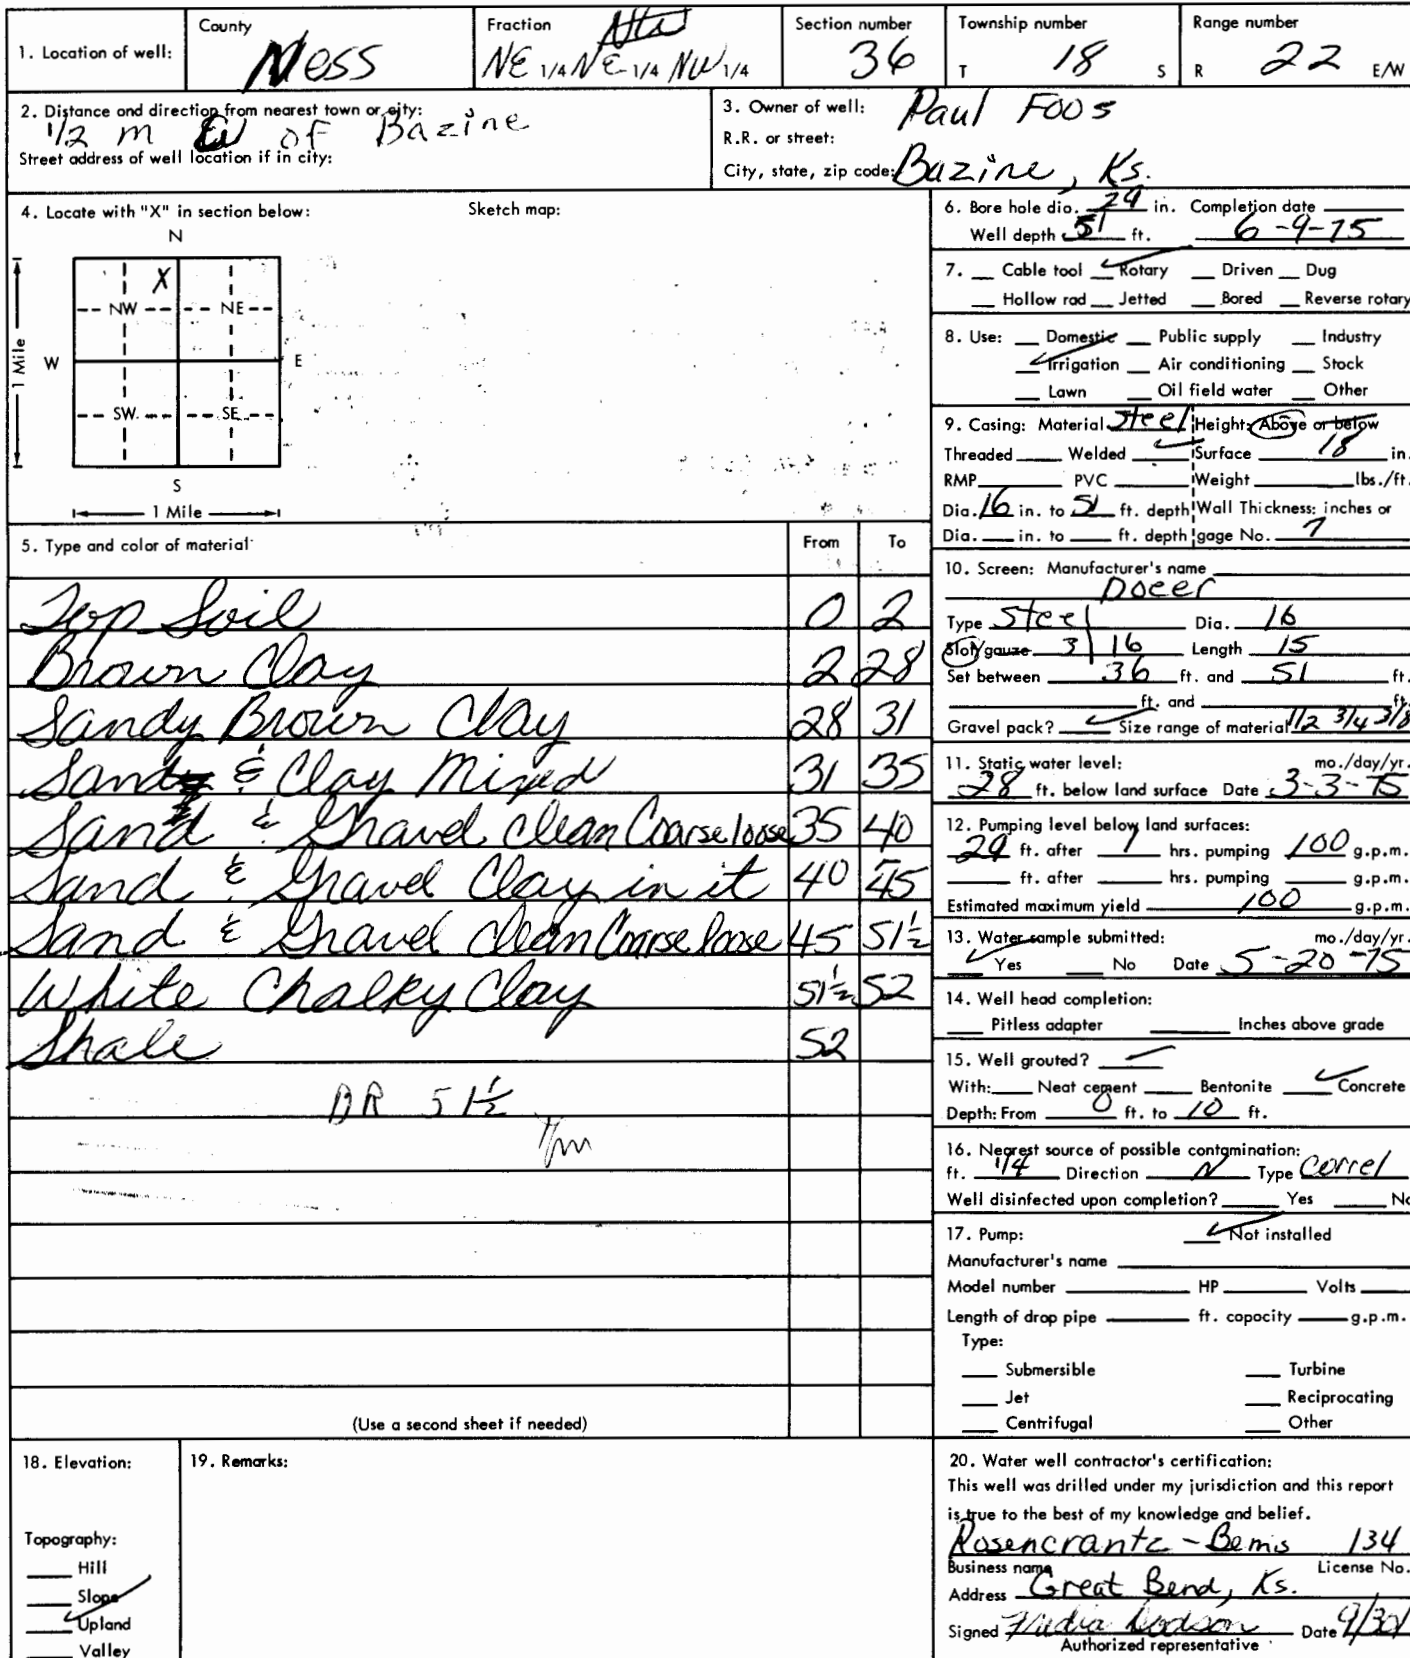 County
Fraction
Section number
Township number
Range number
1. Location of well:
Ness
NE 1/4 NE 1/4 NW 1/4
36
T 18 S
R 22 E/W
2. Distance and direction from nearest town or city:
1/2 m of Bazine
Street address of well location if in city:
3. Owner of well: Paul Foos
R.R. or street:
City, state, zip code: Bazine, Ks.
4. Locate with "X" in section below:
Sketch map:
N
X
NW NE
W E
1 Mile
SW SE
S
1 Mile
5. Type and color of material From To
Top Soil 0 2
Brown Clay 2 28
Sandy Brown Clay 28 31
Sand & Clay Mixed 31 35
Sand & Gravel Clean Coarse loose 35 40
Sand & Gravel Clay in it 40 45
Sand & Gravel Clean Coarse loose 45 51½
White Chalky Clay 51½ 52
Shale 52
BR 51½
(Use a second sheet if needed)
6. Bore hole dia. 29 in. Completion date
Well depth 51 ft. 6-9-75
7. Cable tool ✓ Rotary Driven Dug
Hollow rad Jetted Bored Reverse rotary
8. Use: Domestic Public supply Industry
✓ Irrigation Air conditioning Stock
Lawn Oil field water Other
9. Casing: Material Steel Height: Above or below
Threaded Welded ✓ Surface 18 in.
RMP PVC Weight lbs./ft.
Dia. 16 in. to 51 ft. depth Wall Thickness: inches or
Dia. in. to ft. depth gage No. 7
10. Screen: Manufacturer's name
Doerr
Type Steel Dia. 16
Slot/gauze 3/16 Length 15
Set between 36 ft. and 51 ft.
ft. and ft.
Gravel pack? ✓ Size range of material 1/2 3/4 3/8
11. Static water level: mo./day/yr.
28 ft. below land surface Date 3-3-75
12. Pumping level below land surfaces:
29 ft. after 1 hrs. pumping 100 g.p.m.
ft. after hrs. pumping g.p.m.
Estimated maximum yield 100 g.p.m.
13. Water sample submitted: mo./day/yr.
✓ Yes No Date 5-20-75
14. Well head completion:
Pitless adapter Inches above grade
15. Well grouted? ✓
With: Neat cement Bentonite ✓ Concrete
Depth: From 0 ft. to 10 ft.
16. Nearest source of possible contamination:
ft. 1/4 Direction N Type Correl
Well disinfected upon completion? Yes No
17. Pump: ✓ Not installed
Manufacturer's name
Model number HP Volts
Length of drop pipe ft. capacity g.p.m.
Type:
Submersible Turbine
Jet Reciprocating
Centrifugal Other
18. Elevation:
Topography:
Hill
Slope
✓ Upland
Valley
19. Remarks:
20. Water well contractor's certification:
This well was drilled under my jurisdiction and this report
is true to the best of my knowledge and belief.
Rosencrantz-Bemis 134
Business name License No.
Address Great Bend, Ks.
Signed Dodson Date 9/30/
Authorized representative